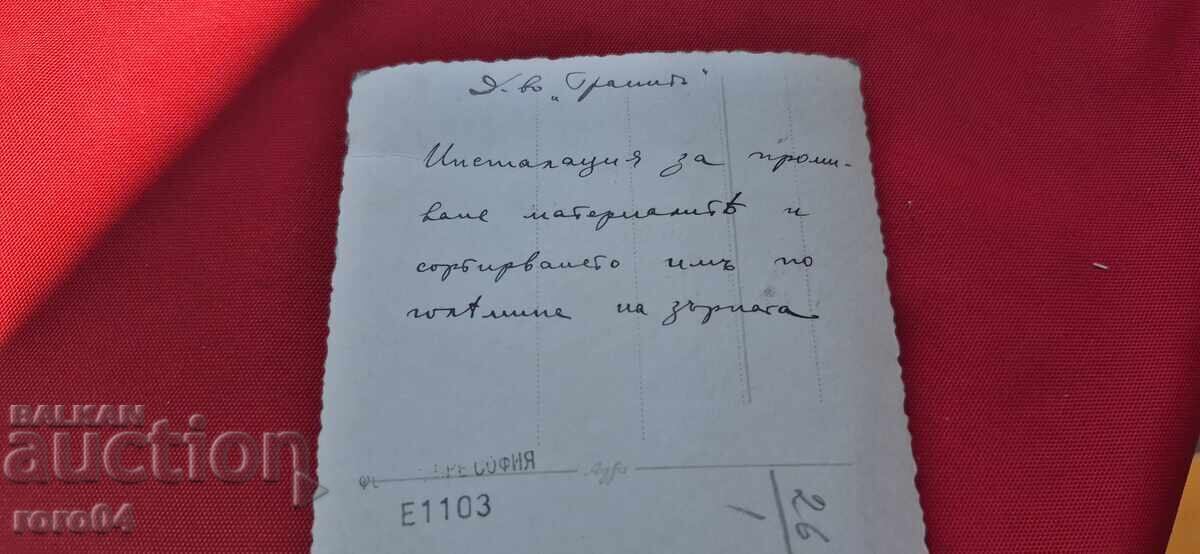 Д-во „Гранитъ"
Инсталация за проми-
ване материалитѣ и
сортирването имъ по
голѣмина на зърната
СОФИЯ
Agfa
E1103
26
1
BALKAN
auction
roro64